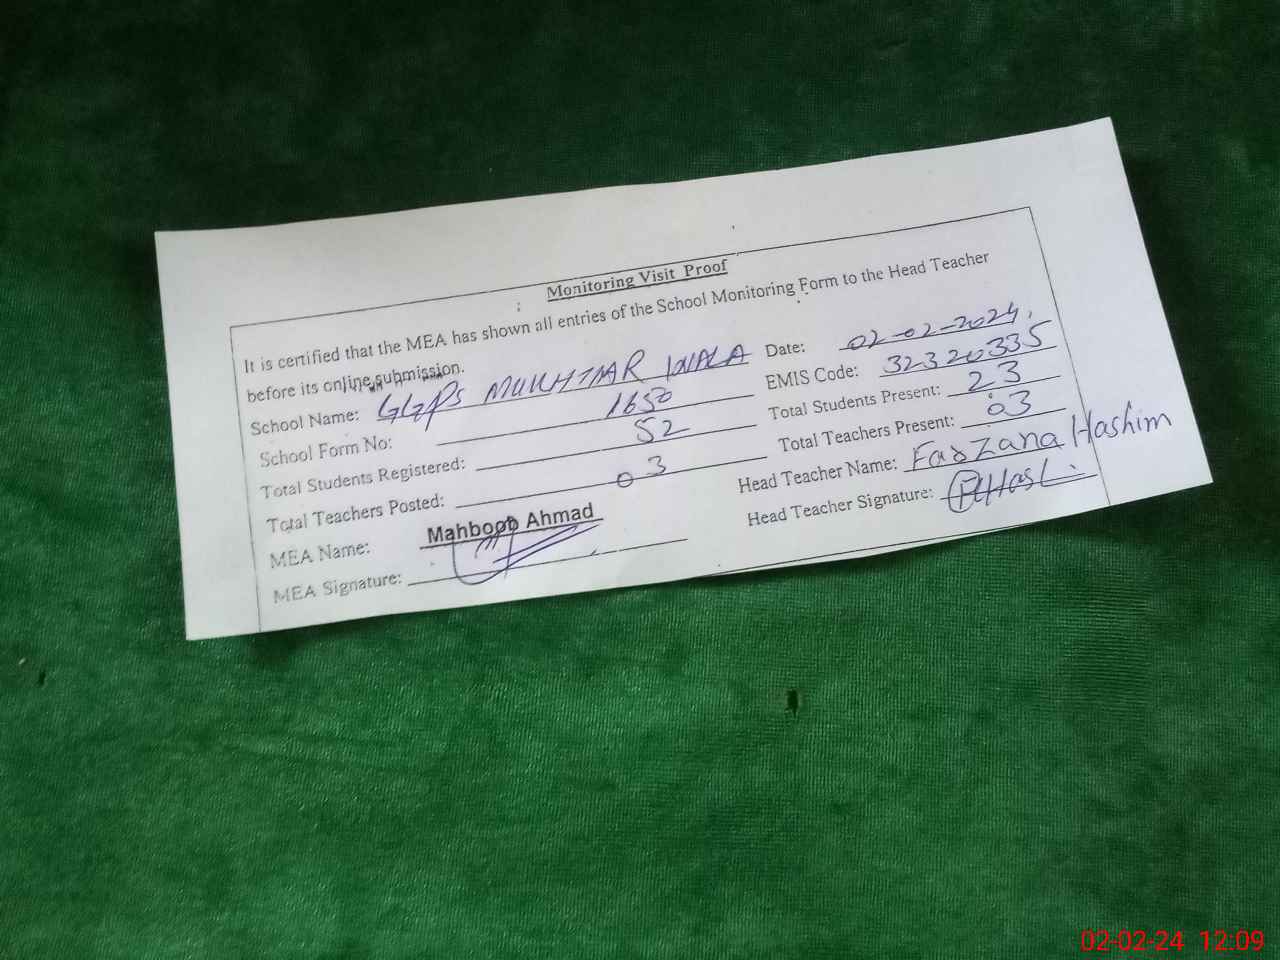 Monitoring Visit Proof
It is certified that the MEA has shown all entries of the School Monitoring Form to the Head Teacher
before its online submission.
School Name: GGPS MUKHTAR WALA Date: 02-02-2024.
School Form No: 1650 EMIS Code: 32320335
Total Students Registered: 52 Total Students Present: 23
Total Teachers Posted: 03 Total Teachers Present: 03
MEA Name: Mahboob Ahmad Head Teacher Name: Farzana Hashim
MEA Signature: Head Teacher Signature:
02-02-24 12:09